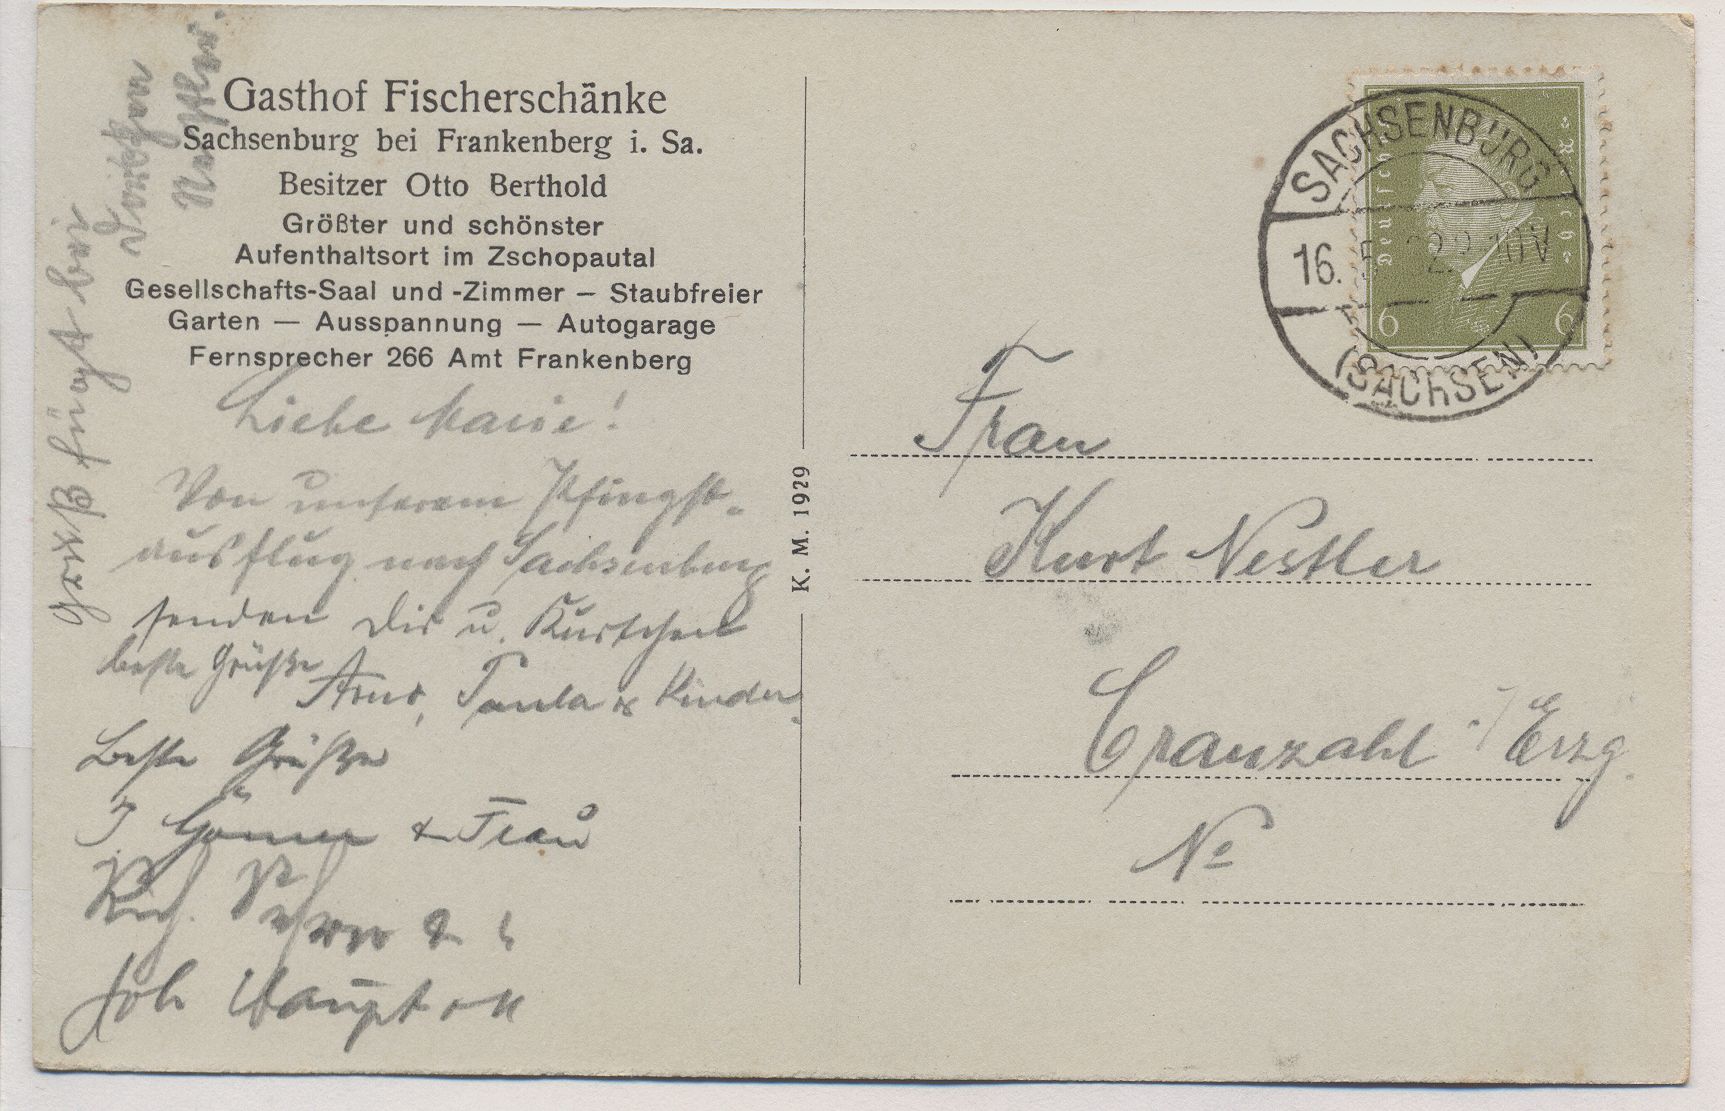 Gasthof Fischerschänke
Sachsenburg bei Frankenberg i. Sa.
Besitzer Otto Berthold
Größter und schönster
Aufenthaltsort im Zschopautal
Gesellschafts-Saal und -Zimmer – Staubfreier
Garten — Ausspannung — Autogarage
Fernsprecher 266 Amt Frankenberg
Liebe Marie!
Von unserem Pfingst-
ausflug nach Sachsenburg
senden Dir u. Kurtchen
beste Grüße Arno, Paula & Kinder.
Beste Grüße
& Frau
Rich.
Joh
Gruß fügt bei
Nestler.
K. M. 1929
SACHSENBURG
16. 5. 10V
(SACHSEN)
Deutsches Reich
6 6
Frau
Kurt Nestler
Cranzahl i/Erzg.
No